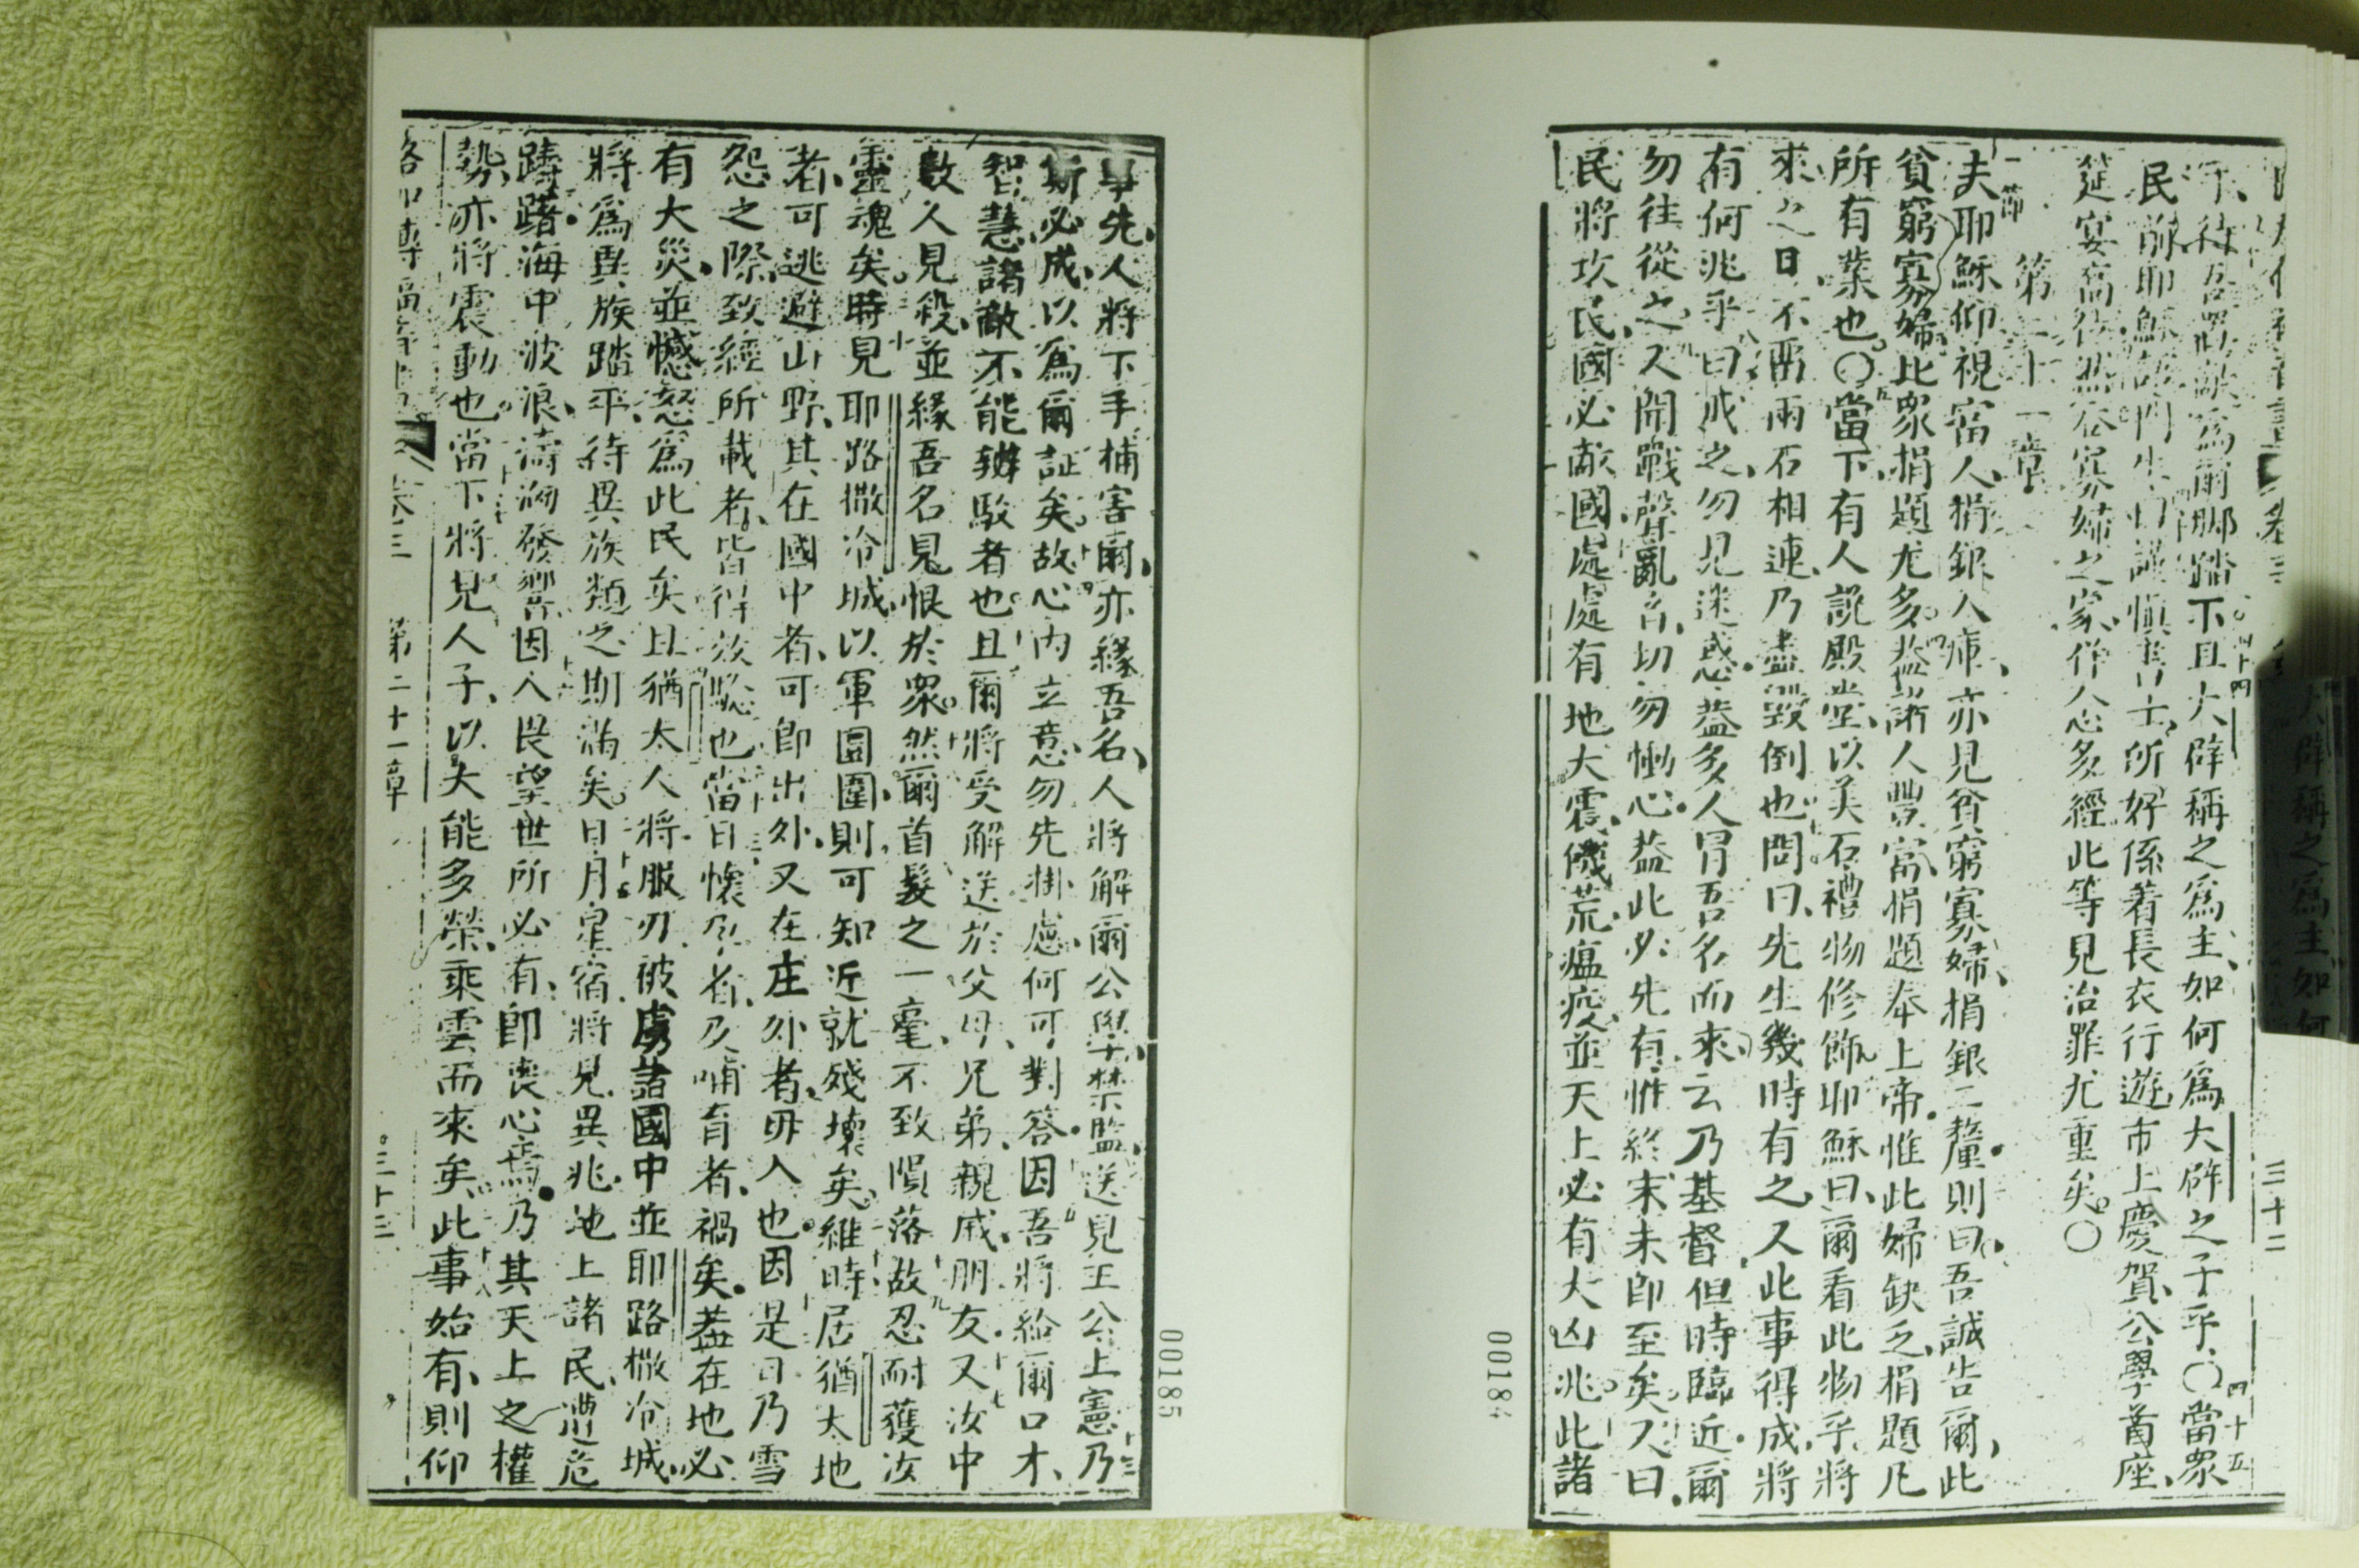 子、待吾置敵為爾脚踏不且大辟稱之為主、如何為大辟之子乎、〇當眾
民前耶穌謂門生曰謹慎書士、所好係着長衣行遊市上慶賀、公學首座、
筵宴高位然吞寡婦之家、佯人念多經此等見治罪尤重矣〇
第二十一章
一節
夫耶穌仰視富人捐銀入庫、亦見貧窮寡婦、捐銀二釐則曰、吾誠告爾、此
貧窮寡婦比眾捐題尤多、蓋諸人豐富、捐題奉上帝惟此婦缺乏、捐題凡
所有業也〇當下、有人說殿堂、以美石禮物修飾、耶穌曰、爾看此物乎、將
來之日、不留兩石相連、乃盡毀倒也、問曰、先生幾時有之、又此事得成、將
有何兆乎、曰戒之、勿見迷惑、蓋多人冒吾名而來、云乃基督、但時臨近、爾
勿往從之、又聞戰聲亂言、切勿慟心、蓋此必先有、惟終末未即至矣、又曰
民將攻民、國必敵國、處處有地大震、饑荒、瘟疫、並天上必有大凶兆、此諸
三十二
00184
事先、人將下手捕害爾、亦緣吾名、人將解爾公學、禁監、送見王公上憲、乃
斯必成、以為爾証矣、故心內立意、勿先掛慮何可對答、因吾將給爾口才、
智慧、諸敵不能辦駁者也、且爾將受解送於父母、兄弟、親戚、朋友、又汝中
數人見殺、並緣吾名見恨於眾、然爾首髮之一毫、不致隕落、故忍耐獲汝
靈魂矣、時見耶路撒冷城、以軍圜圍、則可知近就殘壞矣、維時居猶太地
者、可逃避山野、其在國中者、可即出外、又在庄外者、毋入也、因是日乃雪
怨之際、致經所載者、皆得效驗也、當日懷孕者、及哺育者、禍矣、蓋在地必
有大災、並憾怒為此民矣、且猶太人將服刃、被虜諸國中、並耶路撒冷城、
將為異族踏平、待異族類之斯滿矣、日月星宿、將見異兆、地上諸民、遭危
躊躇、海中波浪、濤湧發響、因人畏望世所必有、即喪心焉、乃其天上之權
勢、亦將震動也、當下將見人子、以大能多榮、乘雲而來矣、此事始有、則仰
路加傳福音書 卷三 第二十一章 三十三
00185